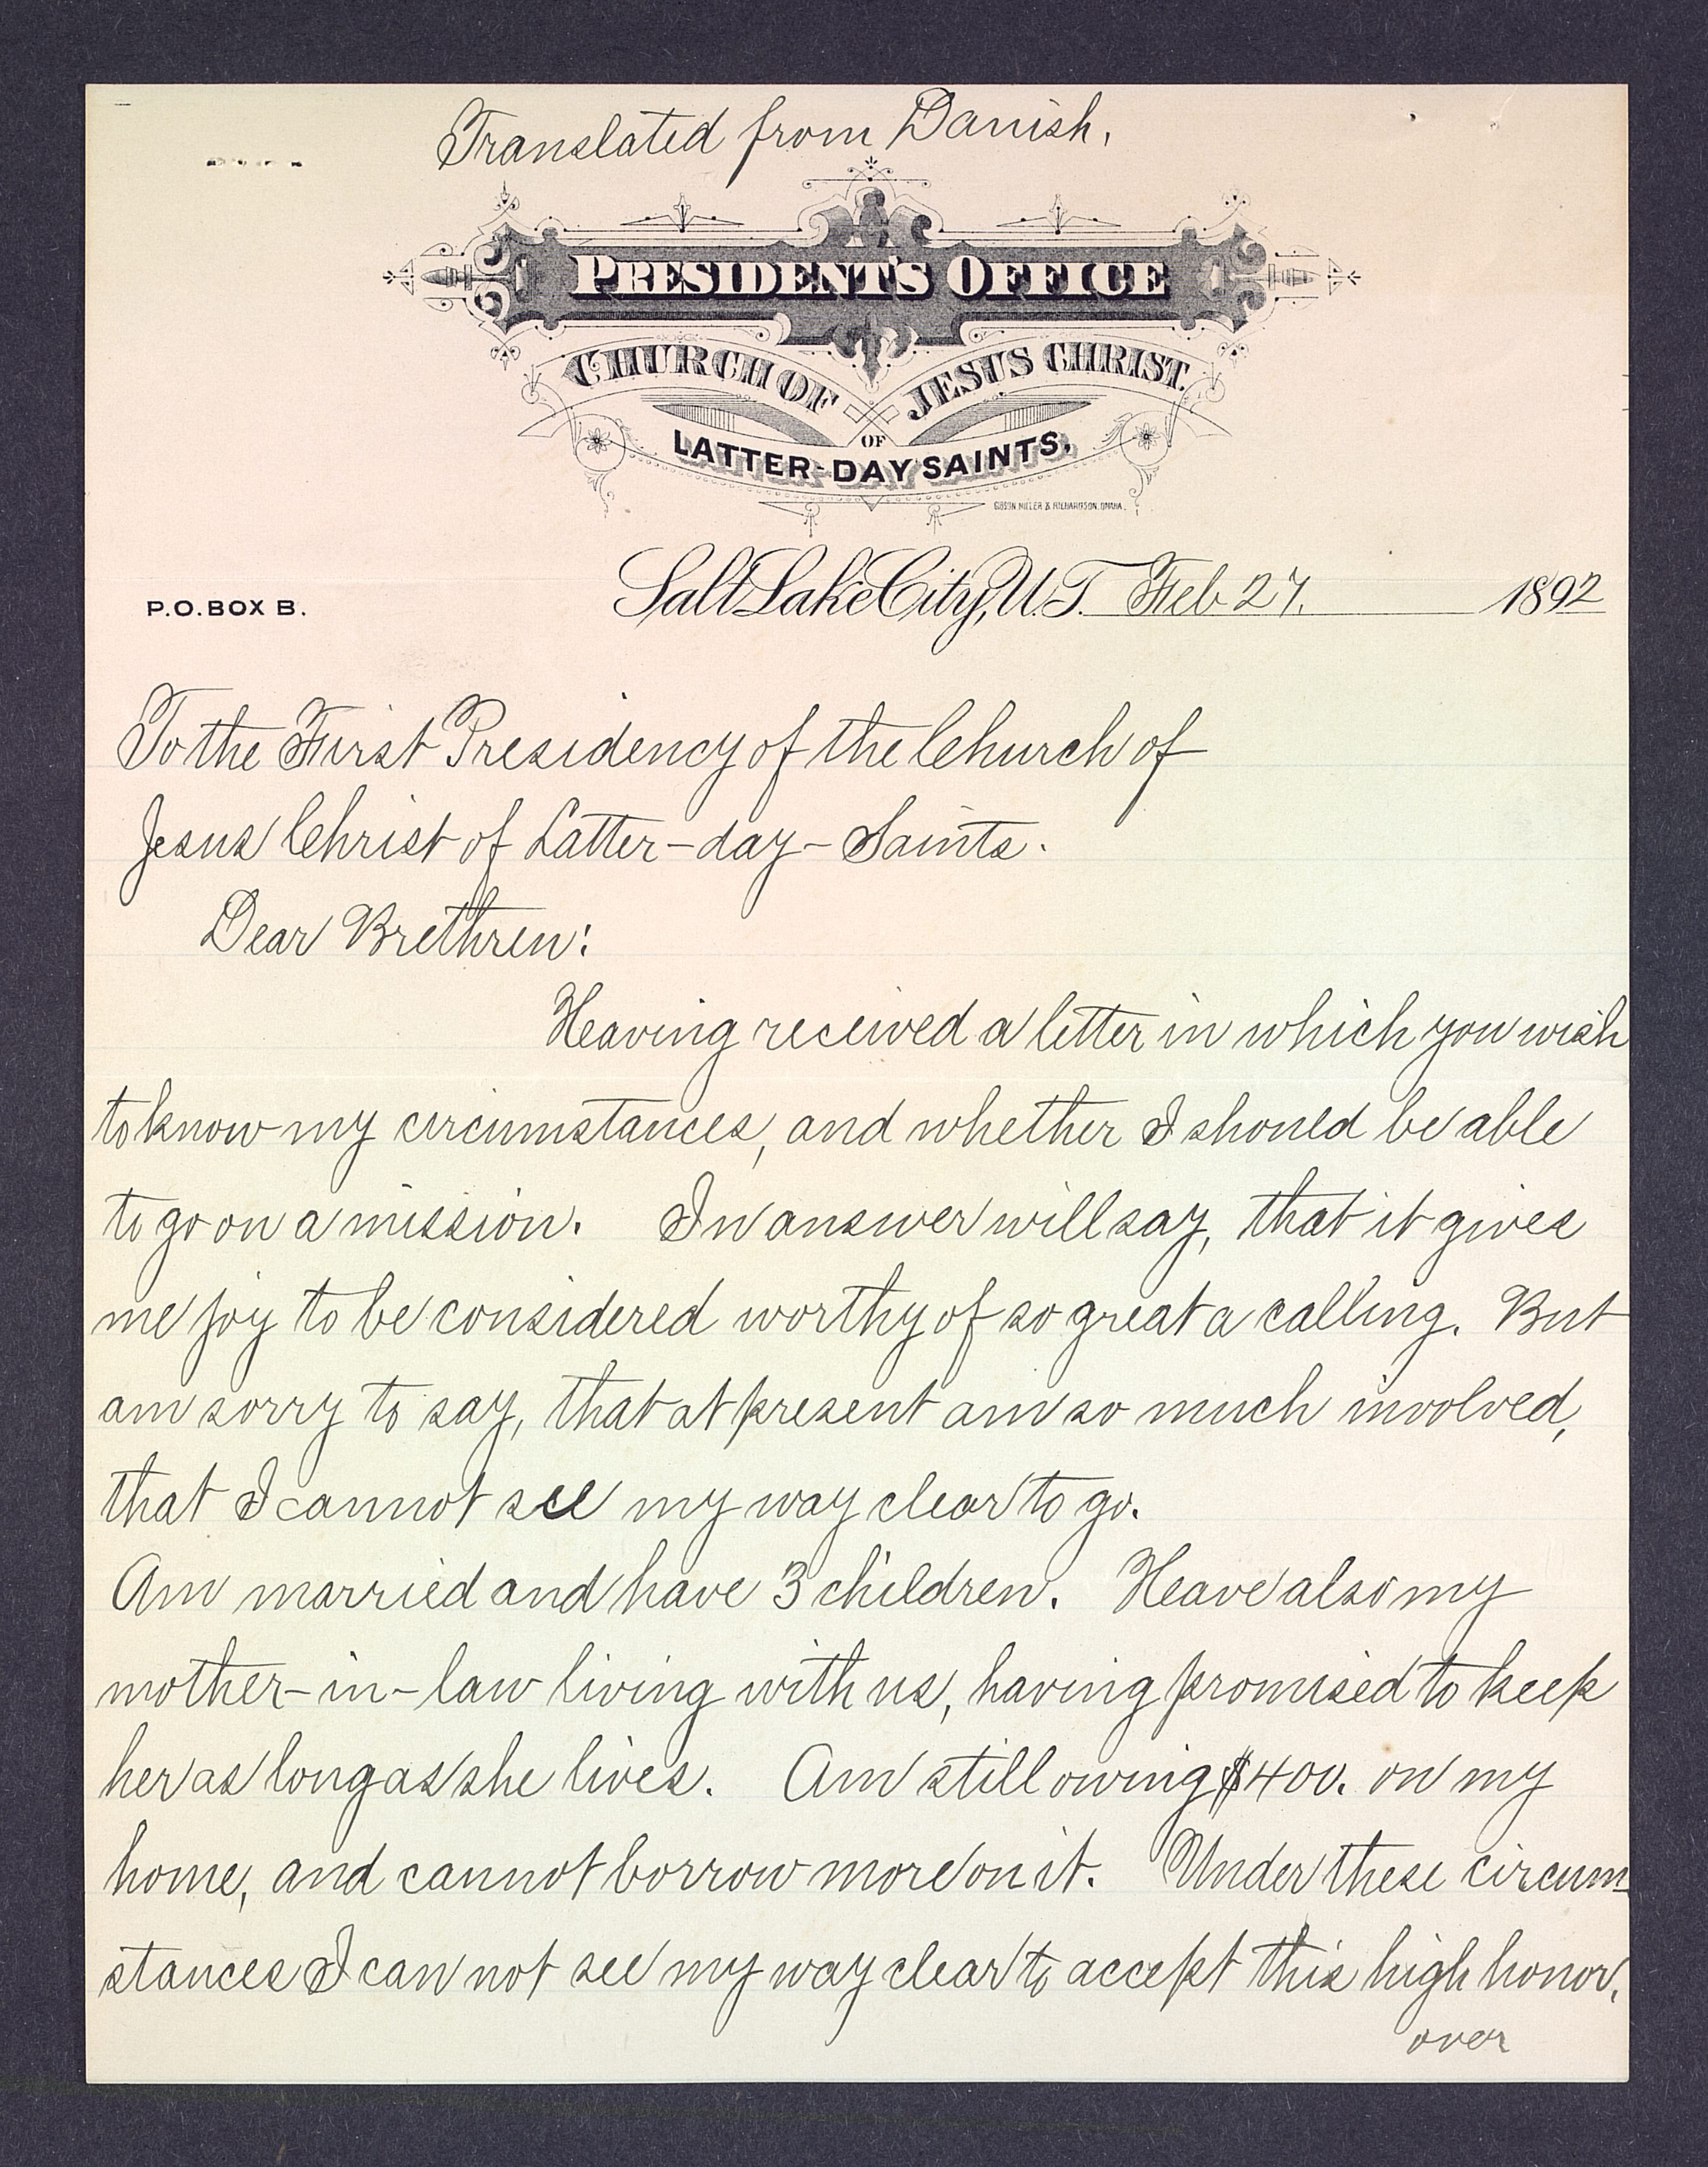 Translated from Danish.
PRESIDENT'S OFFICE
CHURCH OF JESUS CHRIST
OF
LATTER-DAY SAINTS.
GIBSON MILLER & RICHARDSON. OMAHA.
P.O. BOX B.
Salt Lake City, U.T. Feb 27. 1892
To the First Presidency of the Church of
Jesus Christ of Latter-day-Saints.
Dear Brethren:
Having received a letter in which you wish
to know my circumstances, and whether I should be able
to go on a mission. In answer will say, that it gives
me joy to be considered worthy of so great a calling. But
am sorry to say, that at present am so much involved,
that I cannot see my way clear to go.
Am married and have 3 children. Have also my
mother-in-law living with us, having promised to keep
her as long as she lives. Am still owing $400. on my
home, and cannot borrow more on it. Under these circum-
stances I can not see my way clear to accept this high honor.
over